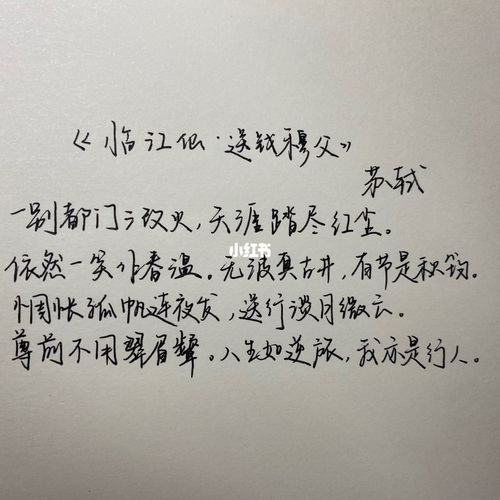 《临江仙·送钱穆父》
苏轼
一别都门三改火，天涯踏尽红尘。
依然一笑作春温。无波真古井，有节是秋筠。
小红书
惆怅孤帆连夜发，送行淡月微云。
尊前不用翠眉颦。人生如逆旅，我亦是行人。